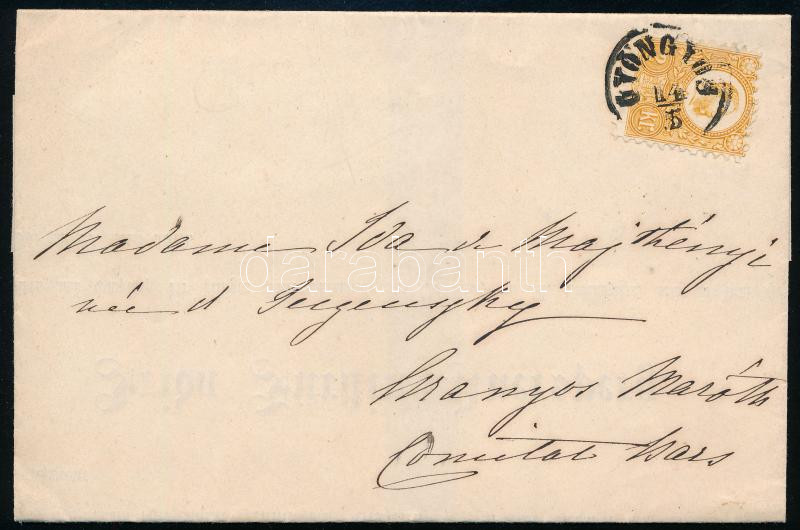 GYÖNGYÖS
14
5
2
kr.
Madame Ida de Majthényi
née d
Aranyos Maróth
Comitat Bars
darabanth